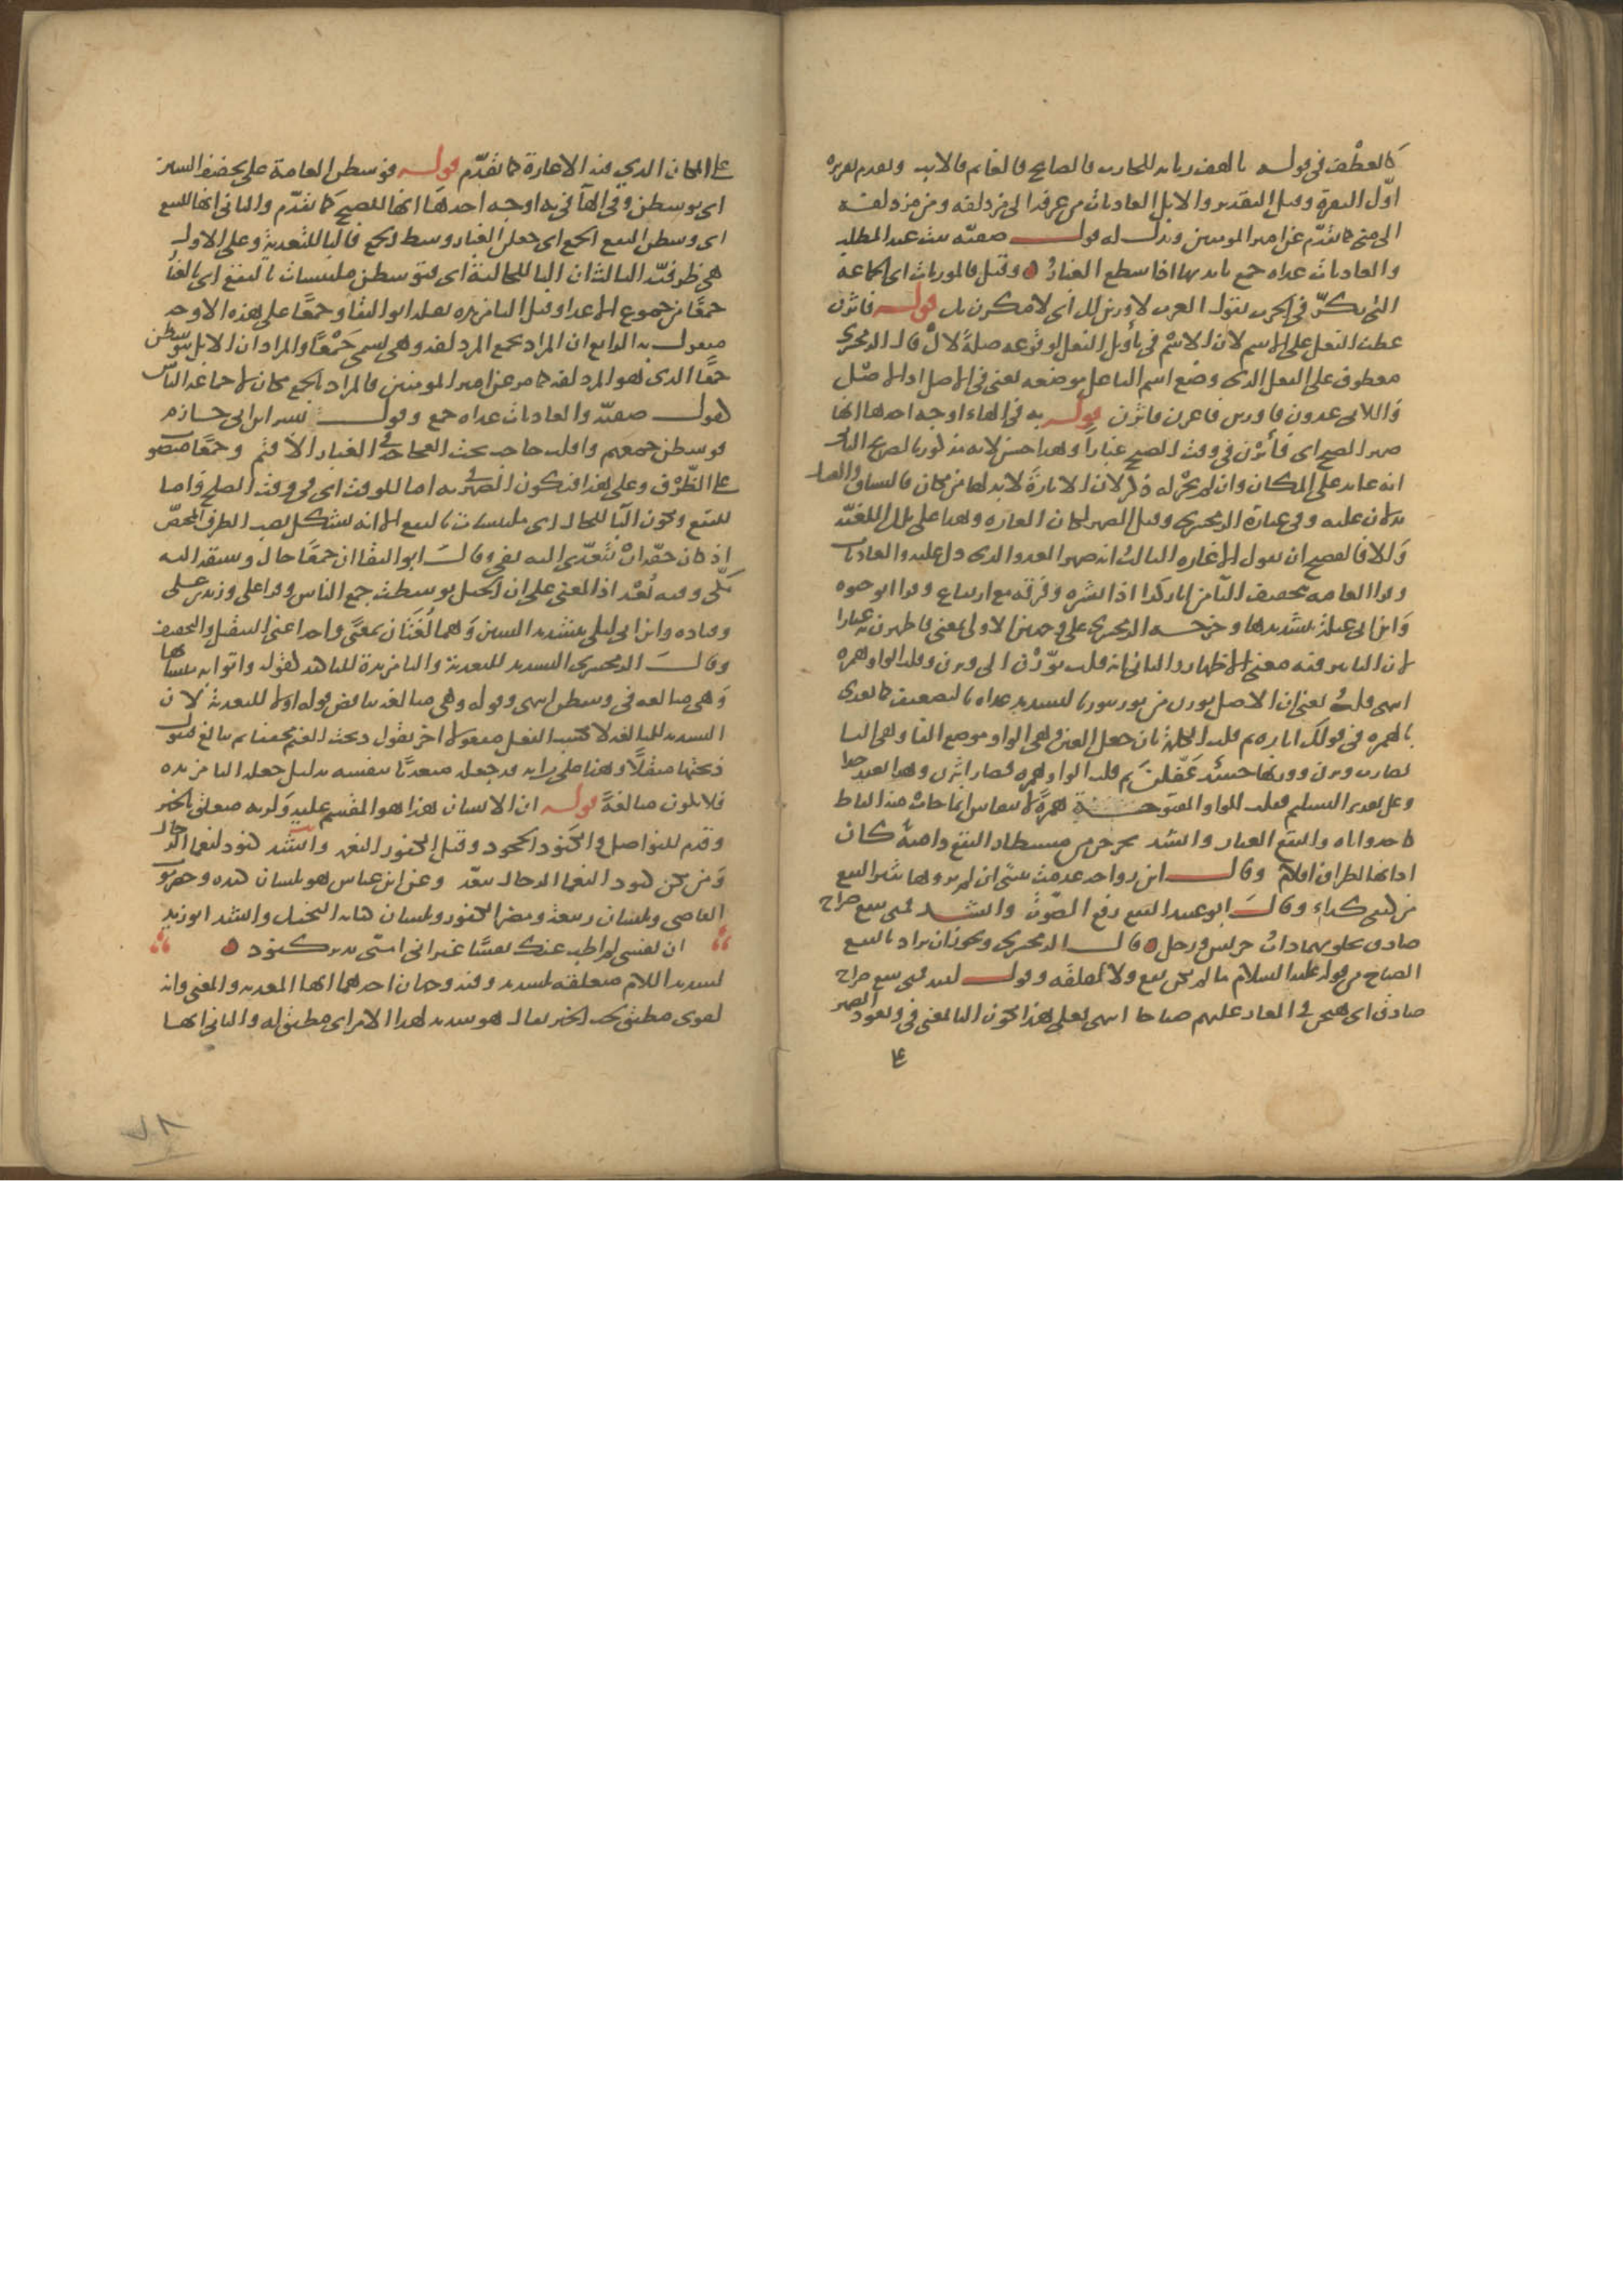 كالعطف في قوله يا لهف زيابه للحارث فالصابح فالغانم فالايب وتقدم تقريره
اول البقرة وقيل التقدير والابل العاديات من عرفة الى مزدلفة ومن مزدلفة
الى منى كما تقدم عن امير المومنين ويدل له قول صفية بنت عبد المطلب
والعاديات غداة جمع بايديها اذا سطع الغبار وقيل فالموريات اى الجماعة
التى تمكر في الحرب تقول العرب لاورين لك اى لامكرن بك قوله فاثرن
عطف الفعل على الاسم لان الاسم في تأويل الفعل لوقوعه صلة لال قال الزمخشري
معطوف على الفعل الذى وضع اسم الفاعل موضعه يعنى في الاصل اذ الاصل
واللاتى عدون فاورين فاغرن فاثرن قوله به في الهاء اوجه احدها انها
ضمير الصبح اى فأثرن في وقت الصبح غبارا وهذا حسن لانه مذكور بالصريح الثانى
انه عايد على المكان وان لم يجر له ذكر لان الاثارة لا بد لها من مكان فالسياق والفعل
يدلان عليه وفي عبارة الزمخشري وقيل الضمير لمكان الغارة وهذا على تلك اللغية
والا فالفصيح ان يقول الاغارة الثالث انه ضمير العدو الذى دل عليه والعاديات
وقرا العامة بتخفيف الثا من اثار كذا اذا نشره وفرقه مع ارتفاع وقرا ابو حيوة
وابن ابى عبلة بتشديدها وخرجه الزمخشري على وجهين الاول بمعنى فاظهرن به غبارا
لان التاثير فيه معنى الاظهار والثانى انه قلب ثورن الى وثرن وقلب الواو همزة
انتهى قلت يعنى ان الاصل ثورن من ثور يثور بالتشديد عداه بالتضعيف كما يعدى
بالهمزة في قولك اثاره ثم قلب الكلمة بان جعل العين وهى الواو موضع الفا وهى الثا
فصارت وثرن ووزنها حينئذ عفلن ثم قلب الواو همزة فصار اثرن وهذا بعيد جدا
وعلى تقدير التسليم فقلب الواو المفتوحة همزة لا ينقاس انما جات منه الفاظ
كاحد واناة والنقع الغبار وانشد يخرجن من مستطار النقع دامية كان
اذانها اطراف اقلام وقال ابن رواحة عدمت بنيتى ان لم تروها تثير النقع
من كنفى كداء وقال ابو عبيد النقع رفع الصوت وانشد فمتى ينقع صراخ
صادق يحلبوها ذات جرس وزجل قال الزمخشري ويجوز ان يراد بالنقع
الصياح من قوله عليه السلام ما لم يكن نقع ولا لقلقة وقول لبيد فمتى ينقع صراخ
صادق اى هيجن في المغار عليهم صياحا انتهى فعلى هذا تكون البا بمعنى في ويعود الضمير
على
على المكان الذي فيه الاغارة كما تقدم قوله فوسطن العامة على تخفيف السين
اى توسطن وفي الها في به اوجه احدها انها للصبح كما تقدم والثانى انها للنقع
اى وسطن النقع الجمع اى جعلن الغبار وسط الجمع فالبا للتعدية وعلى الاول
هى ظرفية الثالث ان البا للحالية اى فتوسطن ملتبسات بالنقع اى بالغبار
جمعا من جموع الاعدا وقيل البا مزيدة نقله ابو البقا وجمعا على هذه الاوجه
مفعول به الرابع ان المراد بجمع المزدلفة وهى تسمى جمعا والمراد ان الابل توسطن
جمعا الذى هو المزدلفة كما مر عن امير المومنين فالمراد بالجمع مكان لا جماعة الناس
كقول صفية والعاديات غداة جمع وقول بشر ابن ابى حازم
فوسطن جمعهم وافلت حاجب تحت العجاجة في الغبار الاقتم وجمعا منصوب
على الظرف وعلى هذا فيكون الضمير في به اما للوقت اى في وقت الصبح واما
للنقع وتكون البا للحال اى ملتبسات بالنقع الا انه يشكل نصب الظرف المختص
اذ كان حقه ان يتعدى اليه بفي وقال ابو البقا ان جمعا حال وسبقه اليه
مكى وفيه بعد اذ المعنى على ان الخيل توسطت جمع الناس وقرا على وزيد بن على
وقتادة وابن ابى ليلى بتشديد السين وهما لغتان بمعنى واحد اعنى التثقيل والتخفيف
وقال الزمخشري التشديد للتعدية والبا مزيدة للتاكيد كقوله واتوا به متشابها
وهى مبالغة في وسطن انتهى وقوله وهى مبالغة يناقض قوله اولا للتعدية لان
التشديد للمبالغة لا يكسب الفعل مفعولا اخر تقول ذبحت الغنم مخففا ثم تبالغ فتقول
ذبحتها مثقلا وهنا على رايه قد جعله متعديا بنفسه بدليل جعله البا مزيدة
فلا يكون مبالغة قوله ان الانسان هذا هو المقسم عليه ولربه متعلق بالخبر
وقدم للفواصل والكنود الجحود وقيل الكفور النعمة وانشد كنود لنعما الرجال
ومن يكن كنودا لنعما الرجال يبعد وعن ابن عباس هو بلسان كندة وحضرموت
العاصى وبلسان ربيعة ومضر الكفور وبلسان كنانة البخيل وانشد ابو زيد
ان نفسى لم اطب عنك نفسا غير انى امنى بدين كنود
لشديد اللام متعلقة بشديد وفيه وجهان احدهما انها المعدية والمعنى وانه
لقوى مطيق لحب الخير يقال هو شديد لهذا الامر اى مطيق له والثانى انها